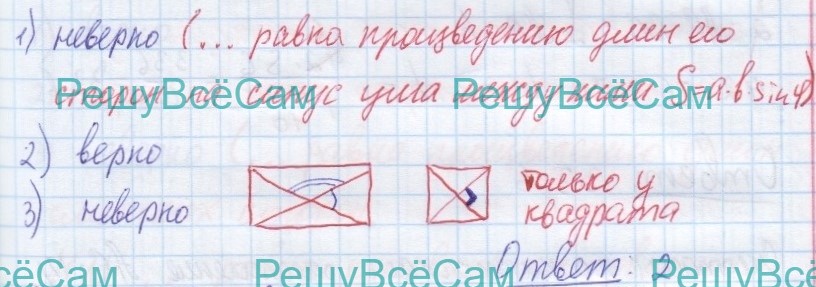 1) неверно (... равна произведению длин его
сторон на синус угла между ними S=a·b sin φ)
РешуВсёСам РешуВсёСам
2) верно
3) неверно
только у
квадрата
Ответ: 2
сёСам РешуВсёСам РешуВсё